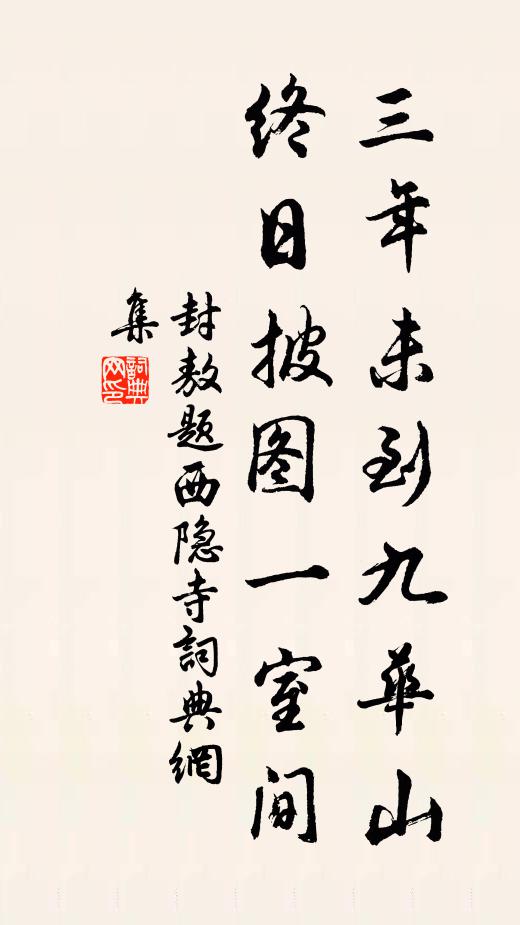 三年未到九華山
终日披图一室间
封敖题西隐寺詞典網
集
詞典
网印